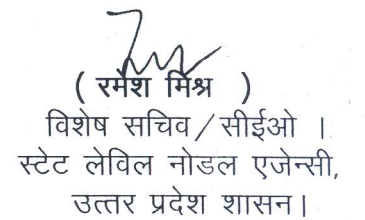 ( रमेश मिश्र )
विशेष सचिव/सीईओ ।
स्टेट लेविल नोडल एजेन्सी,
उत्तर प्रदेश शासन।